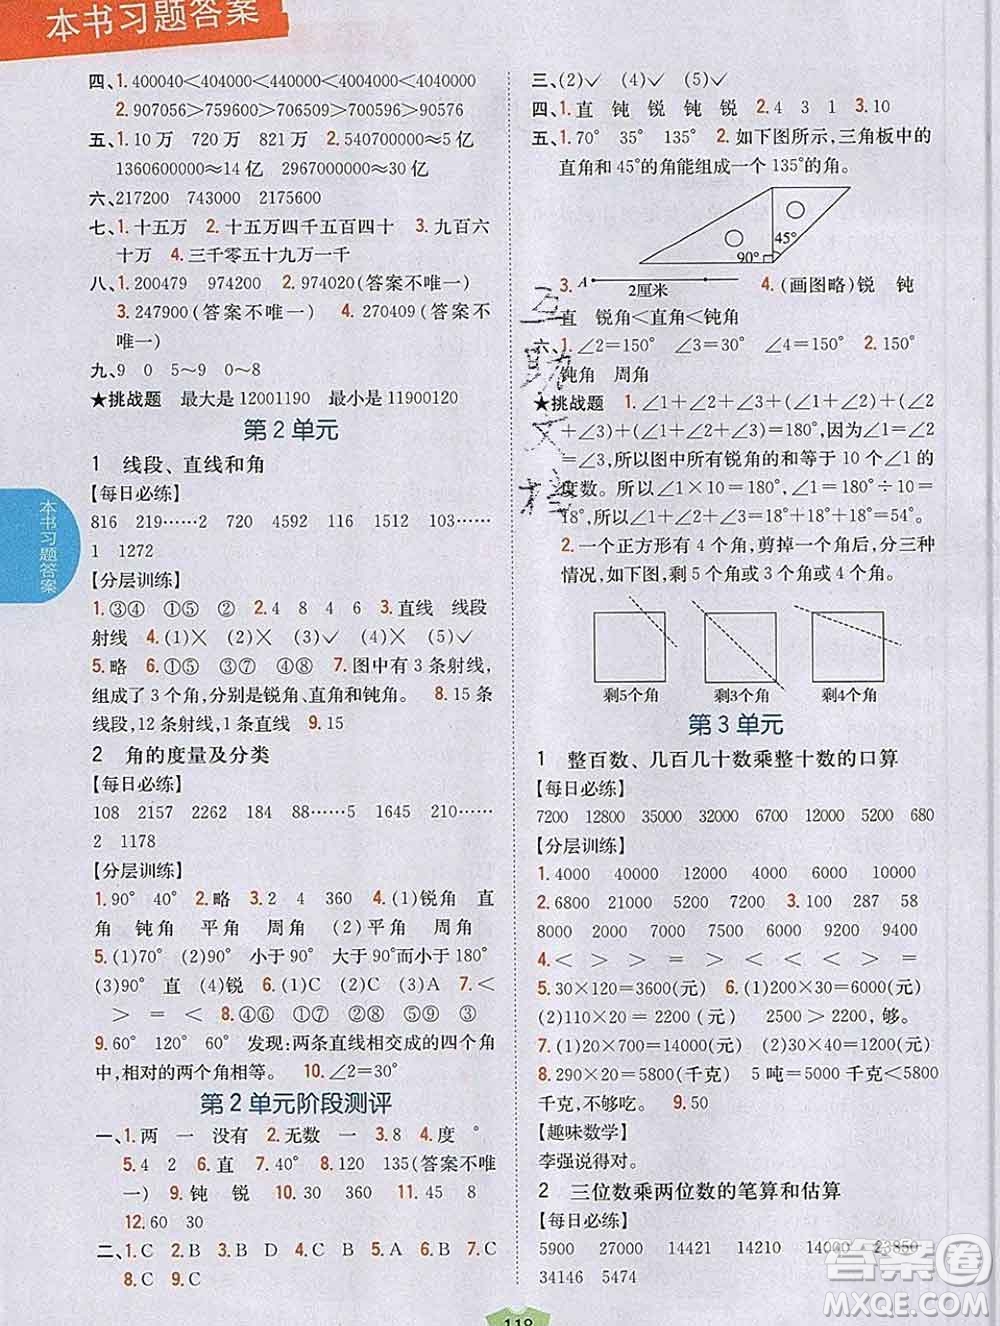 本书习题答案
四、1.400040＜404000＜440000＜4004000＜4040000
2.907056＞759600＞706509＞97536＞90576
五、1.10万 720万 821万 2.547000000≈5亿
1360600000≈14亿 2967000000≈30亿
六、217200 743000 2175600
七、1.十五万 2.十五万四千五百四十 3.九百六
十万 4.三千零五十九万一千
八、1.200479 974200 2.974020(答案不唯一)
3.247900(答案不唯一) 4.270409(答案不
唯一)
九、9 0 5～9 0～8
★挑战题 最大是12001190 最小是11900120
第2单元
1 线段、直线和角
【每日必练】
816 219……2 720 4592 116 1512 103……
1 1272
【分层训练】
1.③④ ①⑤ ② 2.4 8 4 6 3.直线 线段
射线 4.(1)✕ (2)✕ (3)✓ (4)✕ (5)✓
5.略 6.①⑤ ③⑦ ②④ 7.图中有3条射线,
组成了3个角,分别是锐角、直角和钝角。 8.15条
线段,12条射线,1条直线 9.15
2 角的度量及分类
【每日必练】
108 2157 2262 184 88……5 1645 210……
2 1178
【分层训练】
1.90° 40° 2.略 3.2 4 360 4.(1)锐角 直
角 钝角 平角 周角 (2)平角 周角
5.(1)70° (2)180° 小于90° 大于90°而小于180°
(3)90° 直 (4)锐 6.(1)C (2)C (3)A 7.＜
＞ ＝ ＜ 8.④⑥ ①⑦ ②⑤ ⑨ ③
9.60° 120° 60° 发现:两条直线相交成的四个角
中,相对的两个角相等。 10.∠2=30°
第2单元阶段测评
一、1.两 一 没有 2.无数 一 3.8 4.度 °
5.4 2 6.直 7.60 8.120 135(答案不唯
一) 9.钝 锐 10.30 360 11.45 8
12.60 30
二、1.C 2.B 3.B D 4.C 5.B 6.B 7.C
8.C 9.C
三、(2)✓ (4)✓ (5)✓
四、1.直 钝 锐 钝 锐 2.4 3 1 3.10
五、1.70° 35° 135° 2.如下图所示,三角板中的
直角和45°的角能组成一个135°的角。
45°
90°
3. A 2厘米 4.(画图略)锐 钝
直 锐角＜直角＜钝角
六、1.∠2=150° ∠3=30° ∠4=150° 2.180°
钝角 周角
★挑战题 1.∠1+∠2+∠3+(∠1+∠2)+(∠2
+∠3)+(∠1+∠2+∠3)=180°,因为∠1=∠2=
∠3,所以图中所有锐角的和等于10个∠1的
度数。所以10×∠1=180°,∠1=180°÷10=
18°,所以∠1+∠2+∠3=18°+18°+18°=54°。
2.一个正方形有4个角,剪掉一个角后,分三种
情况,如下图,剩5个角、3个角或4个角。
剩5个角 剩3个角 剩4个角
第3单元
1 整百数、几百几十数乘整十数的口算
【每日必练】
7200 12800 35000 8000 4800 5200 680
【分层训练】
1.4000 40000 12000 4000 10000 6000
2.6800 21000 5700 5000 3.100 287 58
8000 2000 7000 7500 6000 9200 54000
4.＜ ＞ ＞ ＝ ＞ ＜ ＞
5.30×120=3600(元) 6.(1)200×30=6000(元)
(2)110×20=2200(元) 2200＞2000,够。
7.(1)20×700=14000(元) (2)30×480=14400(元)
8.290×20=5800(千克) 5吨=5000千克＜5800
千克,不够吃。 9.50
【趣味数学】
李强说得对。
2 三位数乘两位数的笔算和估算
【每日必练】
5900 27000 14421 14210 14000 23850
34146 5474
本书习题答案
118
互助文档
答案圈
MXQE.COM